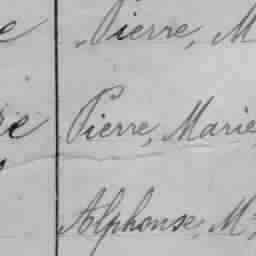 e Pierre, M
re Pierre, Marie
Alphonse, M